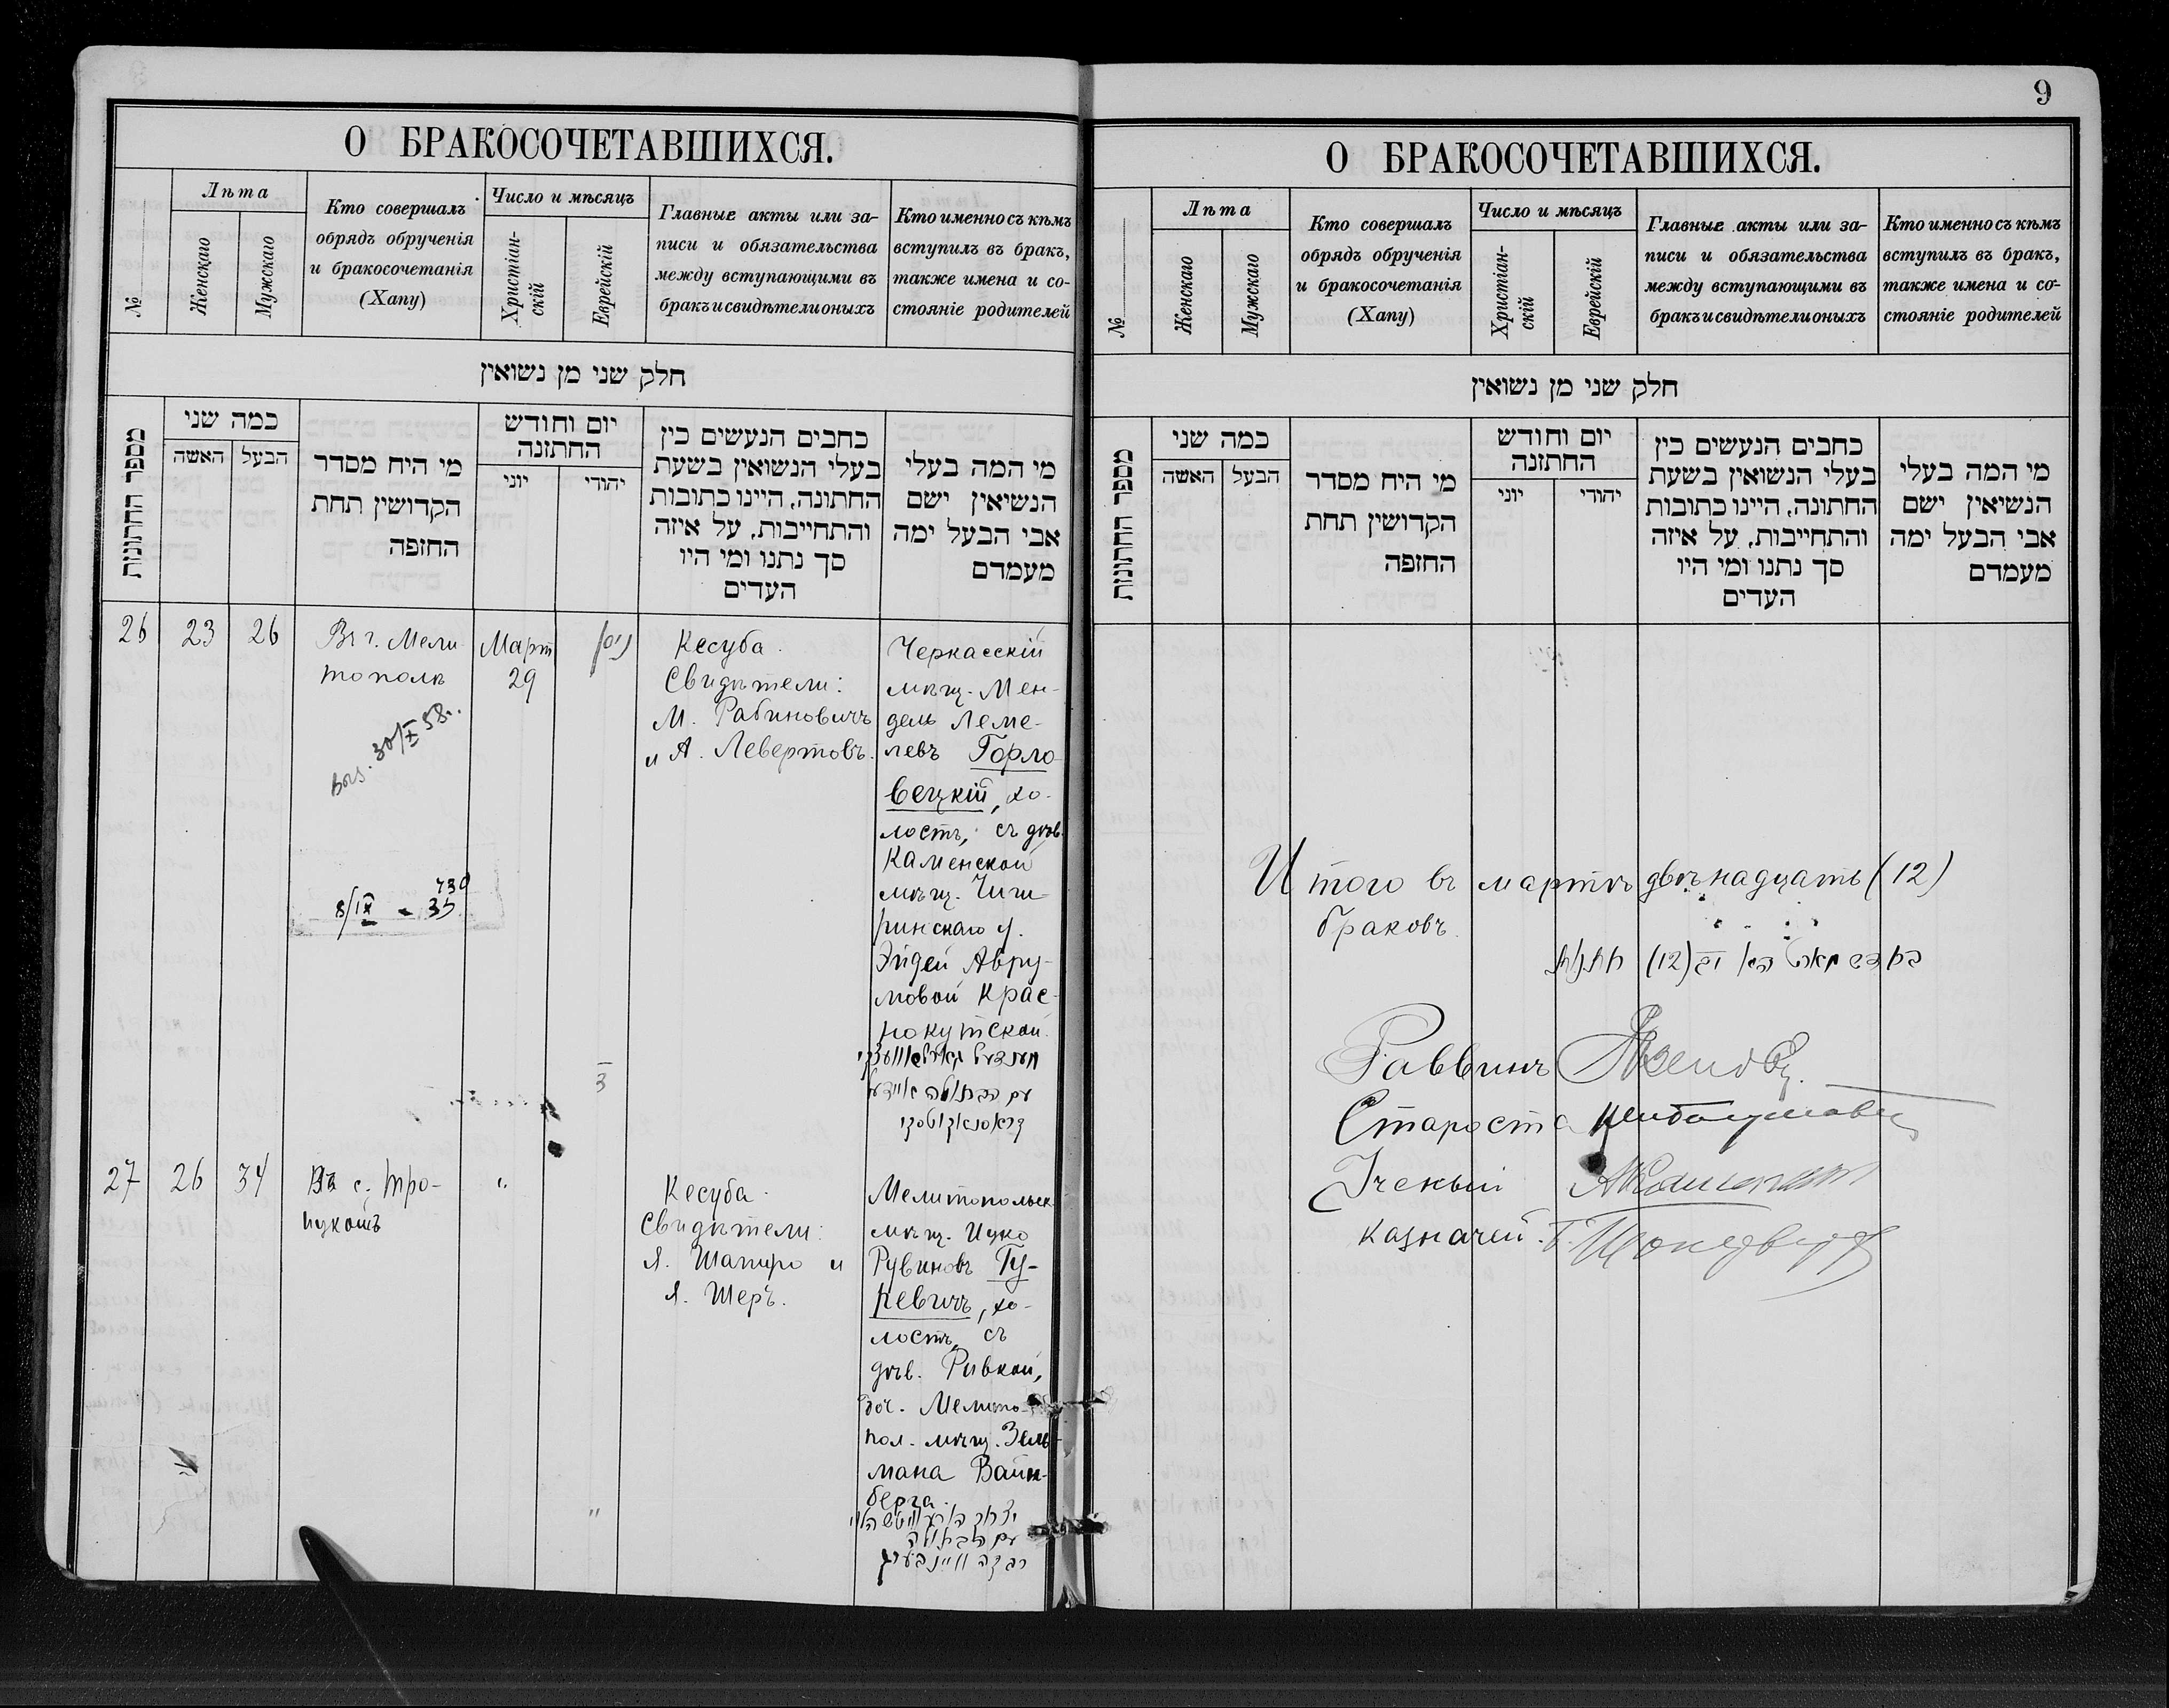 9
О БРАКОСОЧЕТАВШИХСЯ.
№
Лѣта
Женскаго
Мужскаго
Кто совершалъ
обрядъ обрученія
и бракосочетанія
(Хапу)
Число и мѣсяцъ
Христіан-
скій
Еврейскій
Главные акты или за-
писи и обязательства
между вступающими въ
бракъ и свидѣтели оныхъ
Кто именно съ кѣмъ
вступилъ въ бракъ,
также имена и со-
стояніе родителей
חלק שני מן נשואין
מספר החתונות
כמה שני
האשה
הבעל
מי היח מסדר
הקדושין תחת
החזפה
יום וחודש
החתזנה
יוני
יהודי
כחבים הנעשים כין
בעלי הנשואין בשעת
החתונה, היינו כתובות
והתחייבות, על איזה
סך נתנו ומי היו
העדים
מי המה בעלי
הנשיאין ישם
אבי הבעל ימה
מעמדם
26
23
26
Въ г. Мели
тополѣ
Март
29
ניסן
Кесуба.
Свидѣтели:
М. Рабиновичъ
и А. Левертовъ.
Черкасскій
мѣщ. Мен-
дель Леме-
левъ Горло
вецкій, хо-
лостъ, съ дѣв.
Каменской
мѣщ. Чиги
ринскаго у.
Эйдей Авру-
мовой Крас-
нокутской.
מענדעל גארלאוועצקי
עם הבתולה איידעל
קראסנאקוטסקי
30/X 58.
739
8/IX - 35
3
27
26
34
Въ с. Тро-
"
Кесуба.
Свидѣтели:
Я. Шапиро и
Я. Шеръ.
Мелитопольск
мѣщ. Ицко
Рувиновъ Гу-
ревичъ, хо-
лостъ, съ
дѣв. Ривкой,
доч. Мелито-
пол. мѣщ. Зель-
мана Вайн-
берга.
"
יצחק הורעוויטש הלוי
עם הבתולה
רבקה וויינבערג
О БРАКОСОЧЕТАВШИХСЯ.
№
Лѣта
Женскаго
Мужскаго
Кто совершалъ
обрядъ обрученія
и бракосочетанія
(Хапу)
Число и мѣсяцъ
Христіан-
скій
Еврейскій
Главные акты или за-
писи и обязательства
между вступающими въ
бракъ и свидѣтели оныхъ
Кто именно съ кѣмъ
вступилъ въ бракъ,
также имена и со-
стояніе родителей
חלק שני מן נשואין
מספר החתונות
כמה שני
האשה
הבעל
מי היח מסדר
הקדושין תחת
החזפה
יום וחודש
החתזנה
יוני
יהודי
כחבים הנעשים כין
בעלי הנשואין בשעת
החתונה, היינו כתובות
והתחייבות, על איזה
סך נתנו ומי היו
העדים
מי המה בעלי
הנשיאין ישם
אבי הבעל ימה
מעמדם
Итого въ мартѣ двѣнадцать (12)
браковъ.
(12)
Раввинъ
Староста
Ученый
Казначей